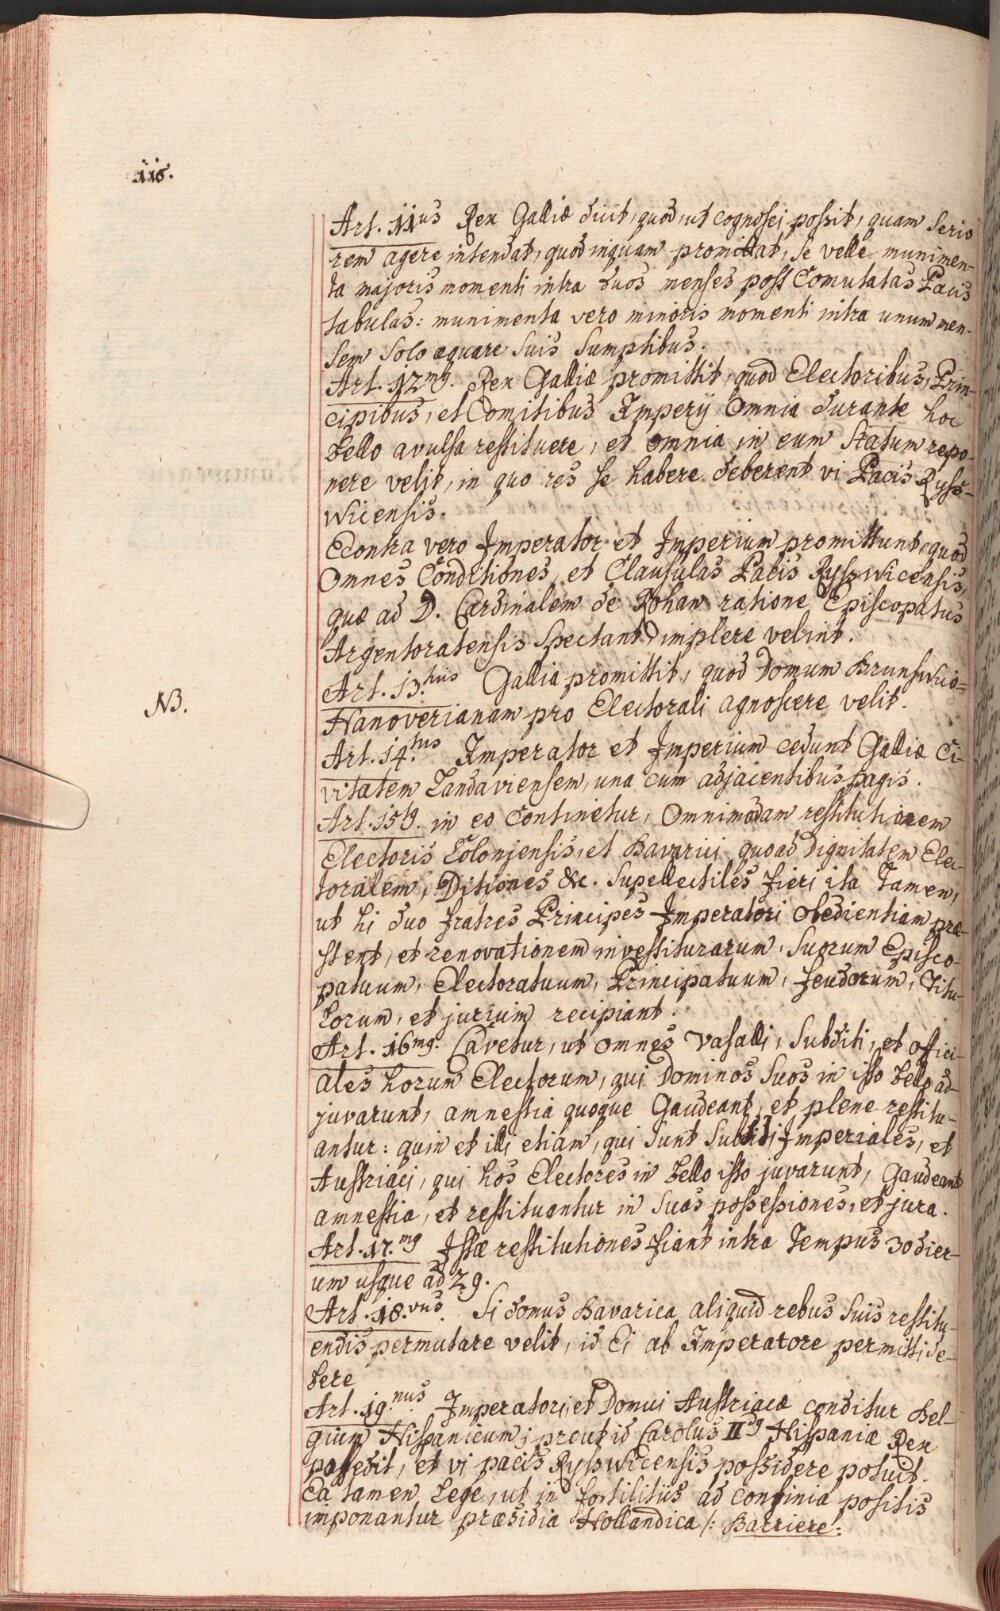 116.
Art. 11us Rex Galliæ dicit, quod, ut cognosci possit, quam serio
rem agere intendat, quod inquam promittat, se velle munimen-
ta majoris momenti intra duos menses post Comutatas Pacis
tabulas: munimenta vero minoris momenti intra unum men-
sem solo æquare suis sumptibus.
Art. 12mg. Rex Galliæ promittit, quod Electoribus, Prin-
cipibus, et Comitibus Imperij omnia durante hoc
bello avulsa restituere, et omnia in eum statum repo-
nere velit, in quo res se habere deberent vi Pacis Ryss-
wicensis.
Econtra vero Imperator et Imperium promittunt, quod
omnes Conditiones, et Clausulas Pacis Rysswicensis,
quæ ad D. Cardinalem de Rohan ratione Episcopatus
Argentoratensis spectant, implere velint.
Art. 13.tius Gallia promittit, quod Domum Brunswico-
NB.
Hanoverianam pro Electorali agnoscere velit.
Art. 14.tus Imperator et Imperium cedunt Galliæ Ci-
vitatem Landaviensem, una cum adjacentibus pagis.
Art. 15tg. in eo continetur, omnimodam restitutionem
Electoris Coloniensis, et Bavarici quoad Dignitatem Elec-
toralem, Ditiones &c. supellectiles fieri ita tamen,
ut hi duo fratres Principes Imperatori obedientiam præ-
stent, et renovationem investiturarum suorum Episco-
patuum, Electoratuum, Principatuum, feudorum, Titu-
lorum, et jurium recipiant.
Art. 16mg. Cavetur, ut omnes vasalli, subditi, et offici-
ales horum Electorum, qui Dominos suos in isto bello ad-
juvarunt, amnestia quoque gaudeant, et plene restitu-
antur: quin et illi etiam, qui sunt subditi Imperiales, et
Austriaci, qui hos Electores in bello isto juvarunt, gaudeant
amnestia, et restituantur in suas possessiones, et jura.
Art. 17.mg Istæ restitutiones fiant intra tempus 30 dier-
um usque ad 29.
Art. 18.vus. Si domus Bavarica aliquid rebus suis restitu-
endis permutare velit, id Ei ab Imperatore permitti de-
bere
Art. 19.nus Imperatori, et Domui Austriacæ conditur Bel-
gium Hispanicum; prout id Carolus IIdg Hispaniæ Rex
possedit, et vi pacis Rysswicensis possidere potuit.
Ea tamen lege, ut in fortilitiis ad confinia positis
imponantur præsidia Hollandica /: Barriere: